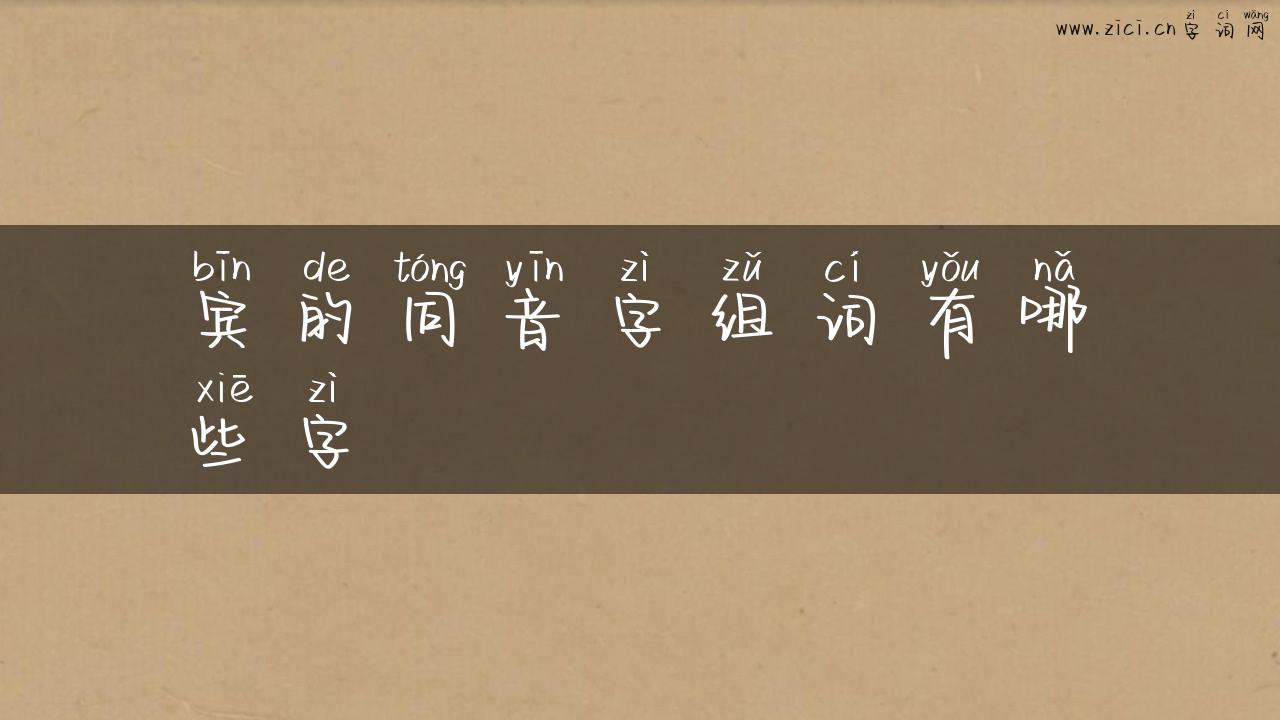 zì cí wǎng
www.zici.cn 字 词 网
bīn de tóng yīn zì zǔ cí yǒu nǎ
宾 的 同 音 字 组 词 有 哪
xiē zì
些 字